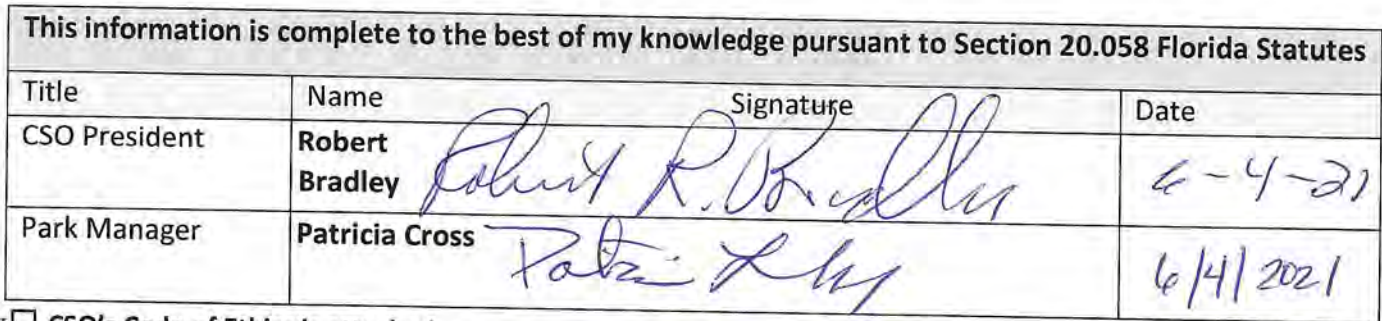 This information is complete to the best of my knowledge pursuant to Section 20.058 Florida Statutes
Title Name Signature Date
CSO President Robert Bradley Robert R. Bradley 6-4-21
Park Manager Patricia Cross 6/4/2021